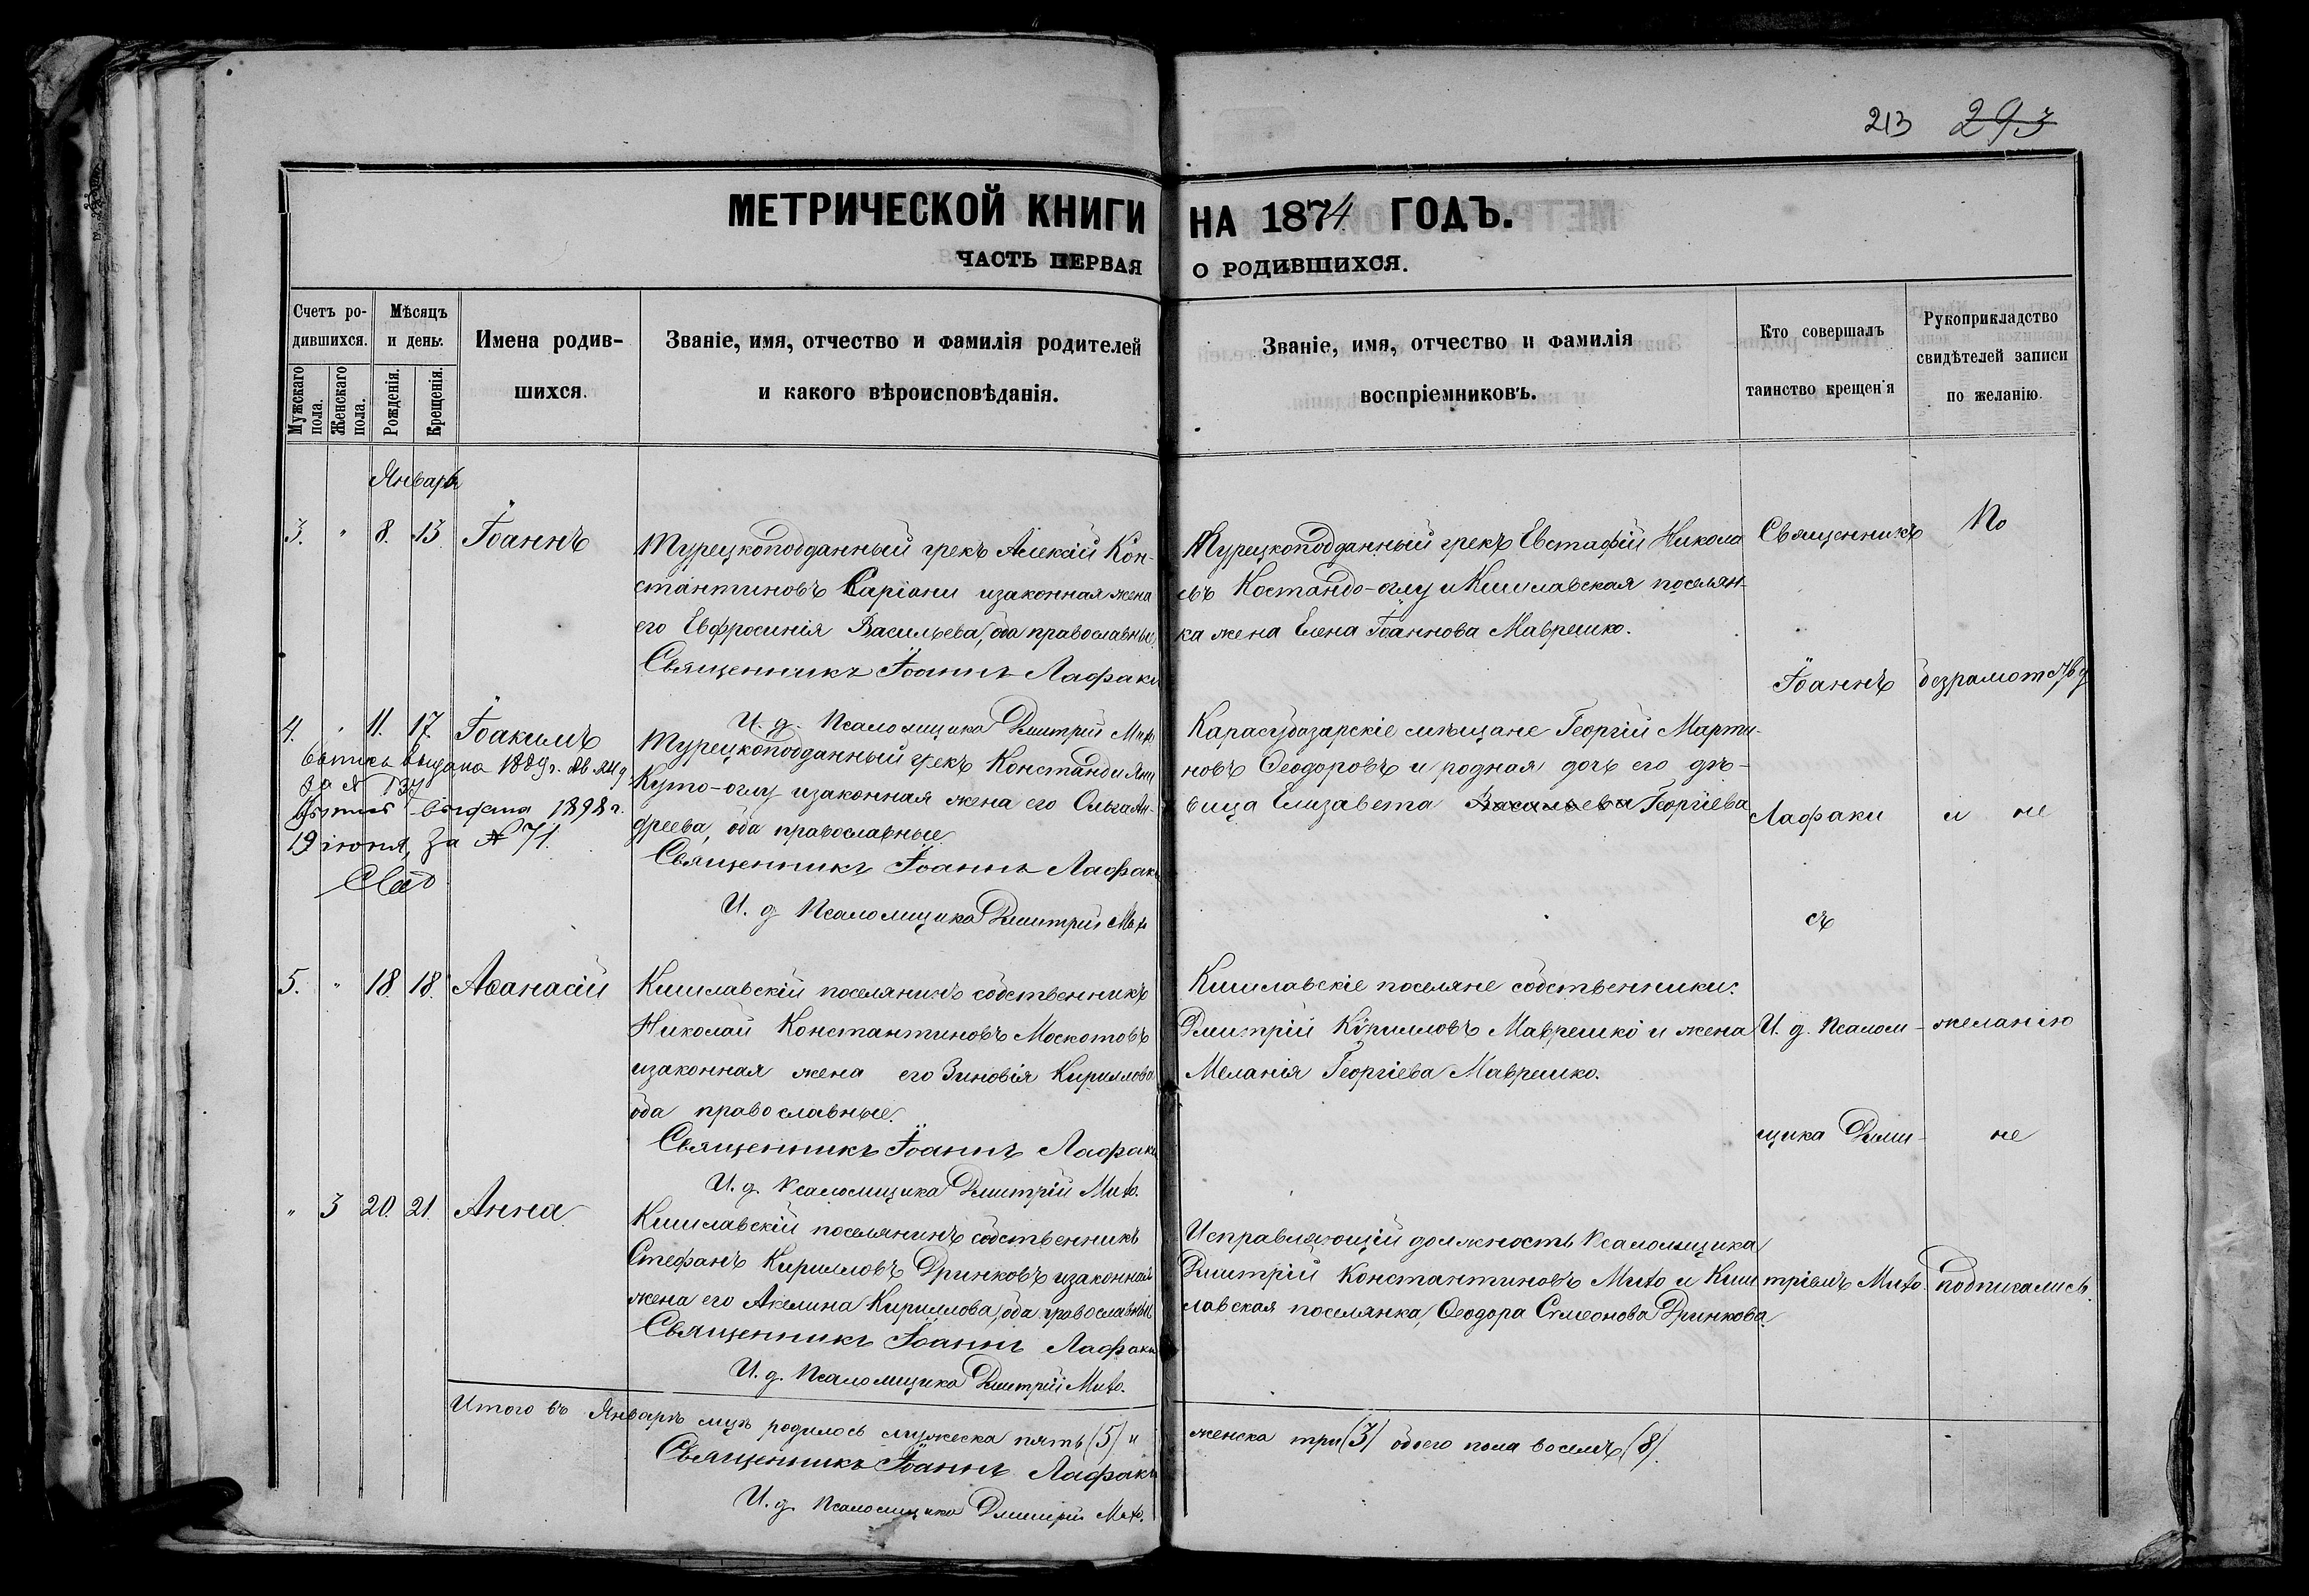 213 293
МЕТРИЧЕСКОЙ КНИГИ НА 1874 ГОДЪ.
ЧАСТЬ ПЕРВАЯ О РОДИВШИХСЯ.
Счетъ ро-
дившихся.
Мужскаго пола.
Женскаго пола.
Мѣсяцъ
и день.
Рожденія.
Крещенія.
Имена родив-
шихся.
Званіе, имя, отчество и фамилія родителей
и какого вѣроисповѣданія.
Званіе, имя, отчество и фамилія
воспріемниковъ.
Кто совершалъ
таинство крещенія
Рукоприкладство
свидѣтелей записи
по желанію.
Январь
3. " 8. 13. Іоаннъ
Турецкоподданный грекъ Алексій Кон-
стантиновъ Саріани и законная жена
его Евфросинія Васильева, оба православные.
Священникъ Іоаннъ Лафаки
И. д. Псаломщика Дмитрій Мито
Турецкоподданный грекъ Евстафій Никола
евъ Костандо-оглу и Кишлавская поселян-
ка жена Елена Іоаннова Маврешко.
4. " 11. 17. Іоакимъ
выпись выдана 1889 г.
за № 137
выпись выдана 1898 г.
19 іюня, за № 71.
Турецкоподданный грекъ Констанди Яни
Куто-оглу и законная жена его Ольга Ан-
дреева, оба православные
Священникъ Іоаннъ Лафаки
И. д. Псаломщика Дмитрій Мито
Карасубазарскіе мѣщане Георгій Марти-
новъ Ѳеодоровъ и родная дочь его дѣ-
вица Елизавета Васильева Георгіева
5. " 18. 18. Аѳанасій
Кишлавскій поселянинъ собственникъ
Николай Константиновъ Москотовъ
и законная жена его Зиновія Кириллова
оба православные.
Священникъ Іоаннъ Лафаки
И. д. Псаломщика Дмитрій Мито.
Кишлавскіе поселяне собственники:
Дмитрій Кирилловъ Маврешко и жена
Меланія Георгіева Маврешко.
" 3 20. 21. Анна
Кишлавскій поселянинъ собственникъ
Стефанъ Кирилловъ Дринковъ и законная
жена его Акелина Кириллова, оба православные
Священникъ Іоаннъ Лафаки
И. д. Псаломщика Дмитрій Мито.
Исправляющій должность Псаломщика
Дмитрій Константиновъ Мито и Киш
лавская поселянка, Ѳеодора Симеонова Дринкова.
Священникъ
Іоаннъ
Лафаки
съ
И. д. Псалом-
щика Дми-
тріемъ Мито.
По
и не
желанію
не
подписались.
Итого въ Январѣ мцѣ родилось мужеска пять (5) "
женска три (3) обоего пола восемь (8).
Священникъ Іоаннъ Лафаки
И. д. Псаломщика Дмитрій Мито.